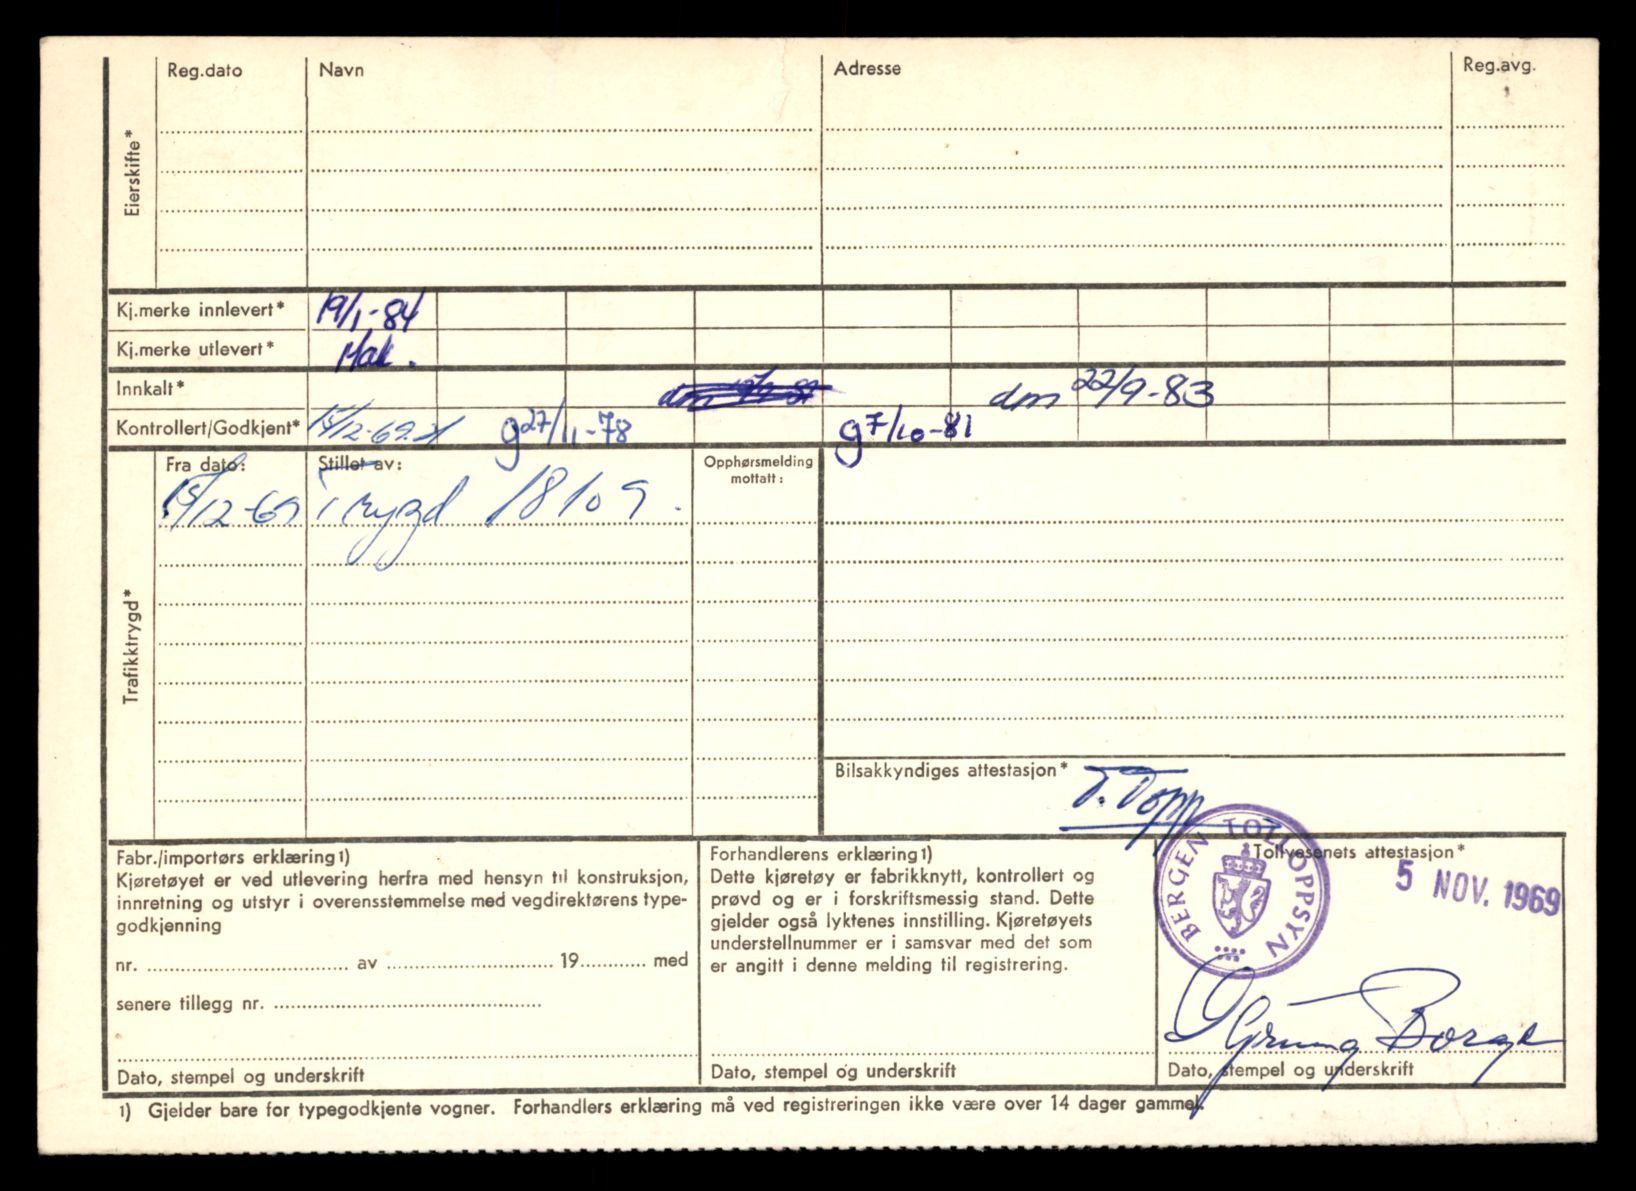 Reg.dato Navn Adresse Reg.avg.
Eierskifte*
Kj.merke innlevert* 19/1-84
Kj.merke utlevert* Hak.
Innkalt* dm 22/9-83
Kontrollert/Godkjent* 15/12-69 g 27/11-78 g 7/10-81
Trafikktrygd*
Fra dato: Stillet av: Opphørsmelding
mottatt:
15/12-69 i trygd 18109.
Bilsakkyndiges attestasjon* T. Topp
Fabr./importørs erklæring1)
Kjøretøyet er ved utlevering herfra med hensyn til konstruksjon,
innretning og utstyr i overensstemmelse med vegdirektørens type-
godkjenning
nr. av 19 med
senere tillegg nr.
Dato, stempel og underskrift
Forhandlerens erklæring1)
Dette kjøretøy er fabrikknytt, kontrollert og
prøvd og er i forskriftsmessig stand. Dette
gjelder også lyktenes innstilling. Kjøretøyets
understellnummer er i samsvar med det som
er angitt i denne melding til registrering.
Dato, stempel og underskrift
Tollvesenets attestasjon*
BERGEN TOLLOPPSYN
5 NOV. 1969
Dato, stempel og underskrift
1) Gjelder bare for typegodkjente vogner. Forhandlers erklæring må ved registreringen ikke være over 14 dager gammel.